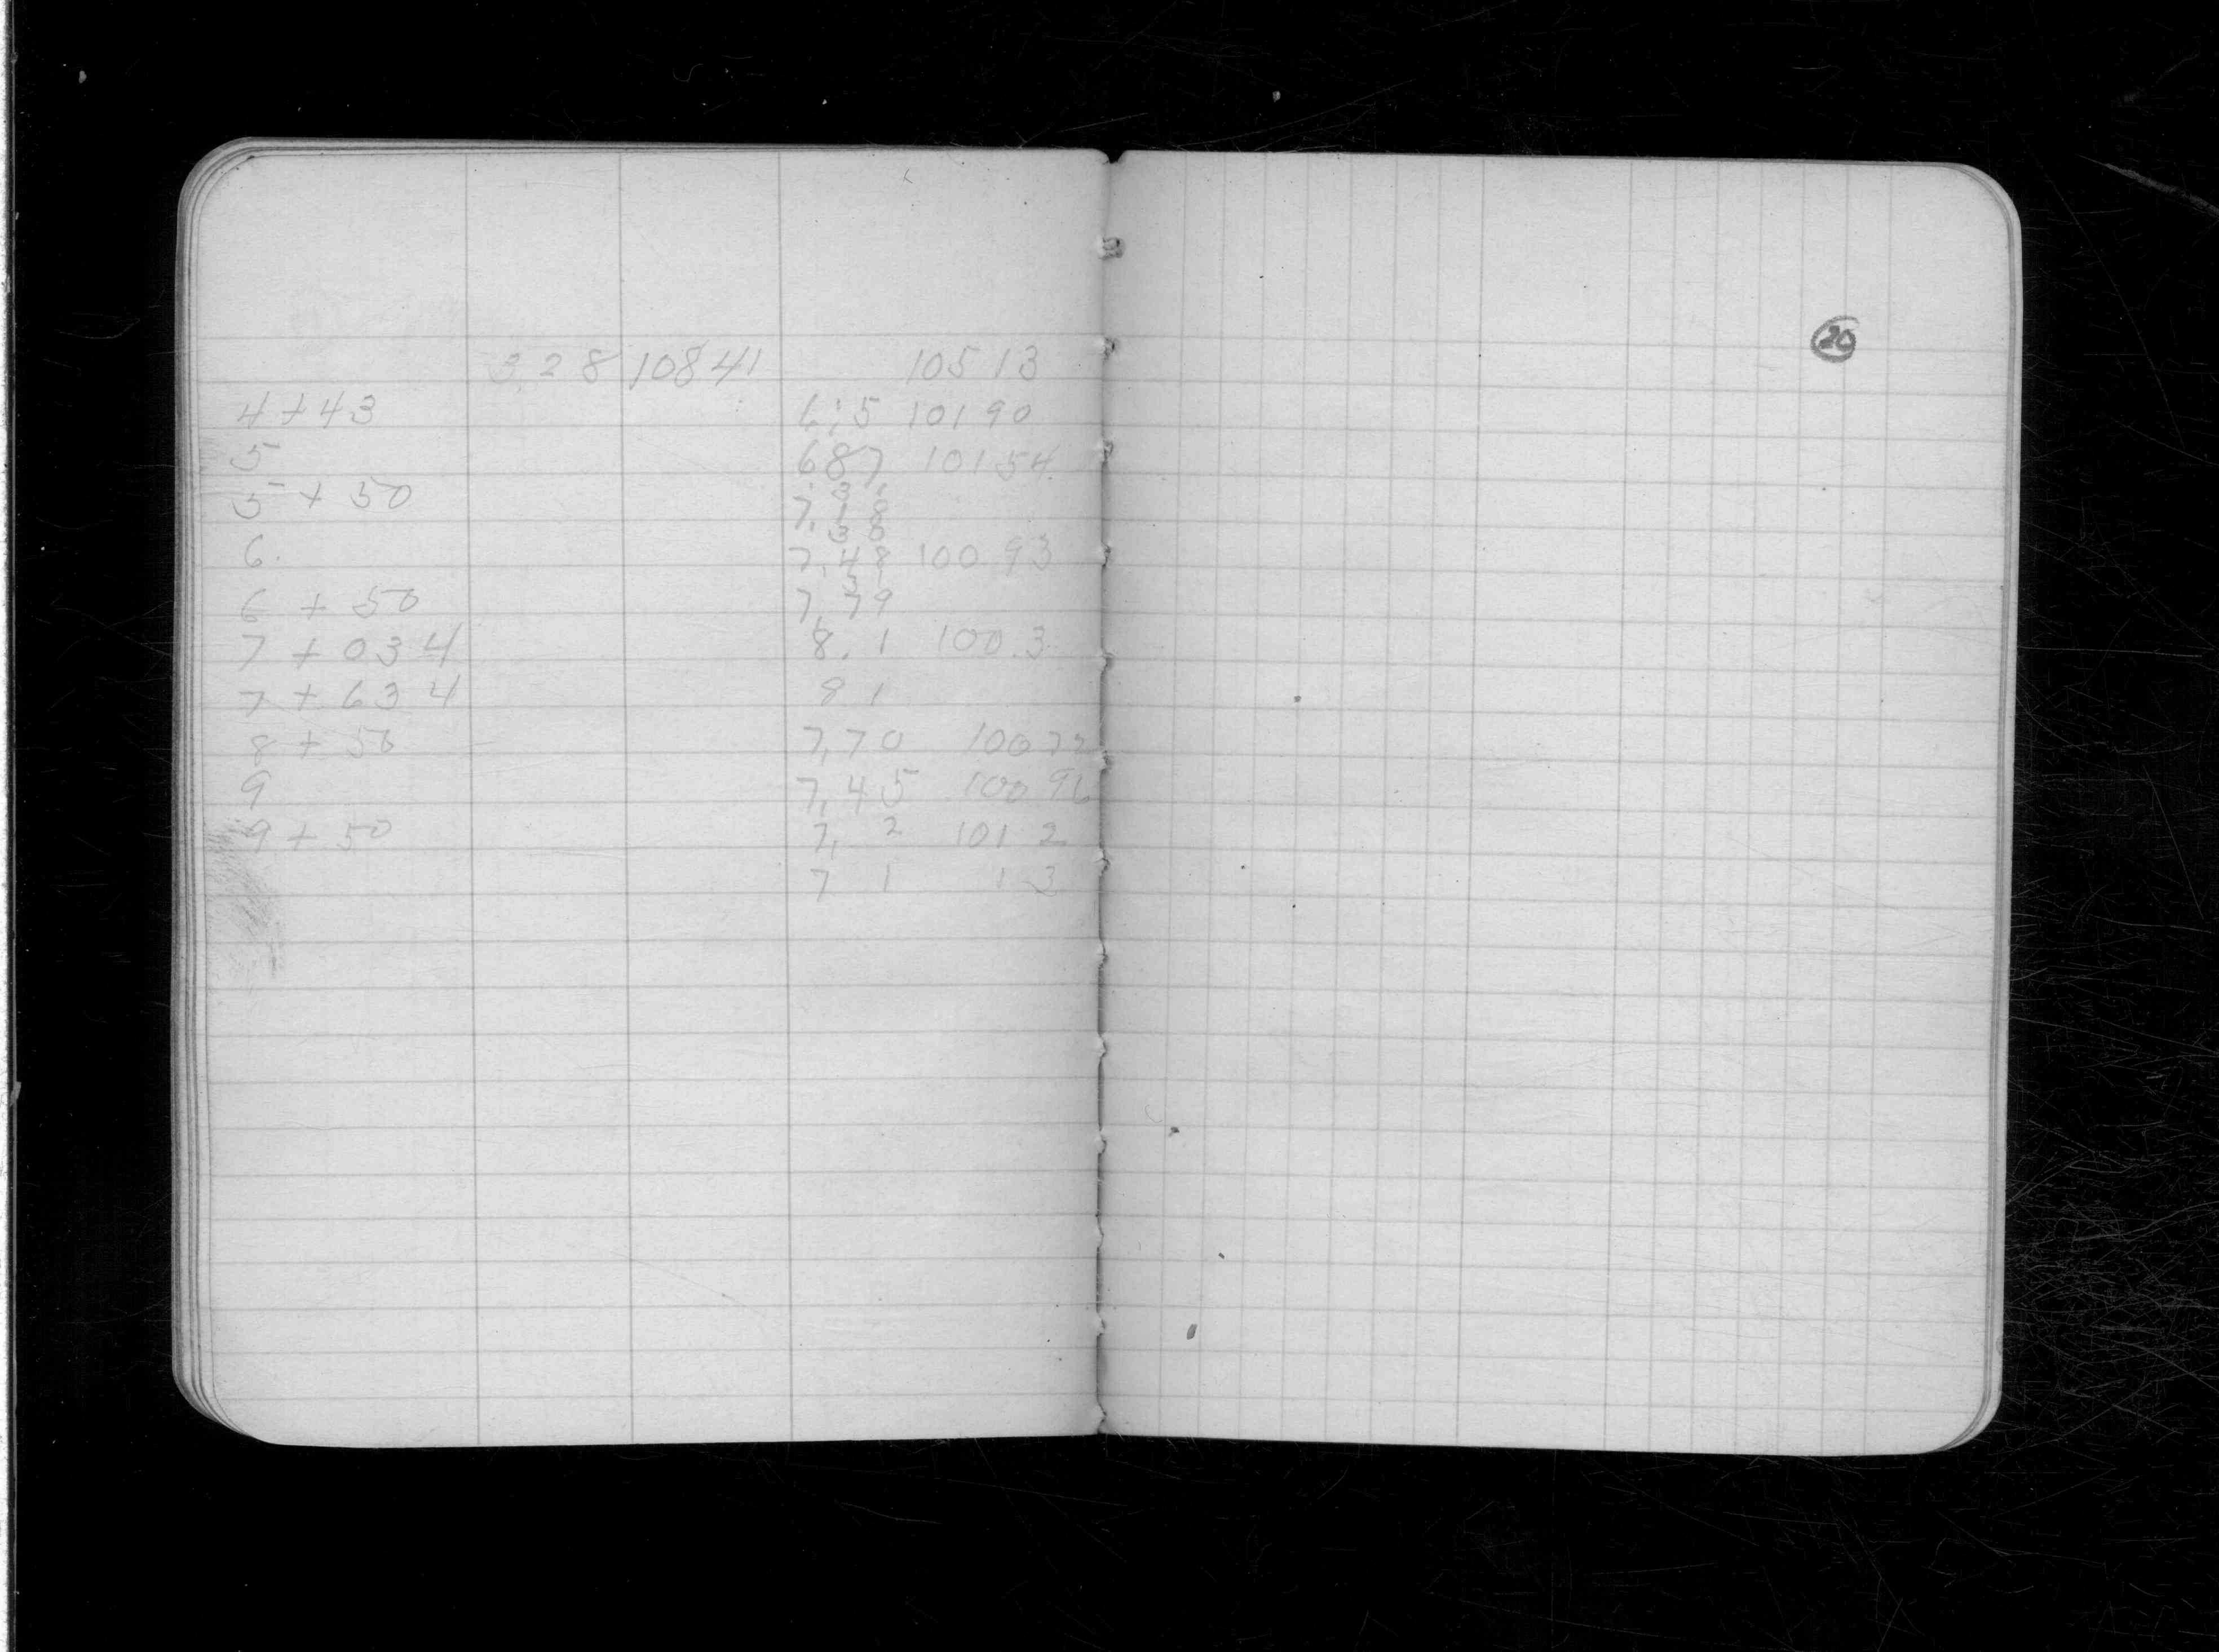 3.28 10841 10513
4+43 10190
5 687 10154
5+50
6. 7,48 10093
6+50 7,79
7+034 8.1 100.3
7+634 81
8+50 7,70 10072
9 7,45 10096
9+50 7, 2 101 2
7 1 1 3
20